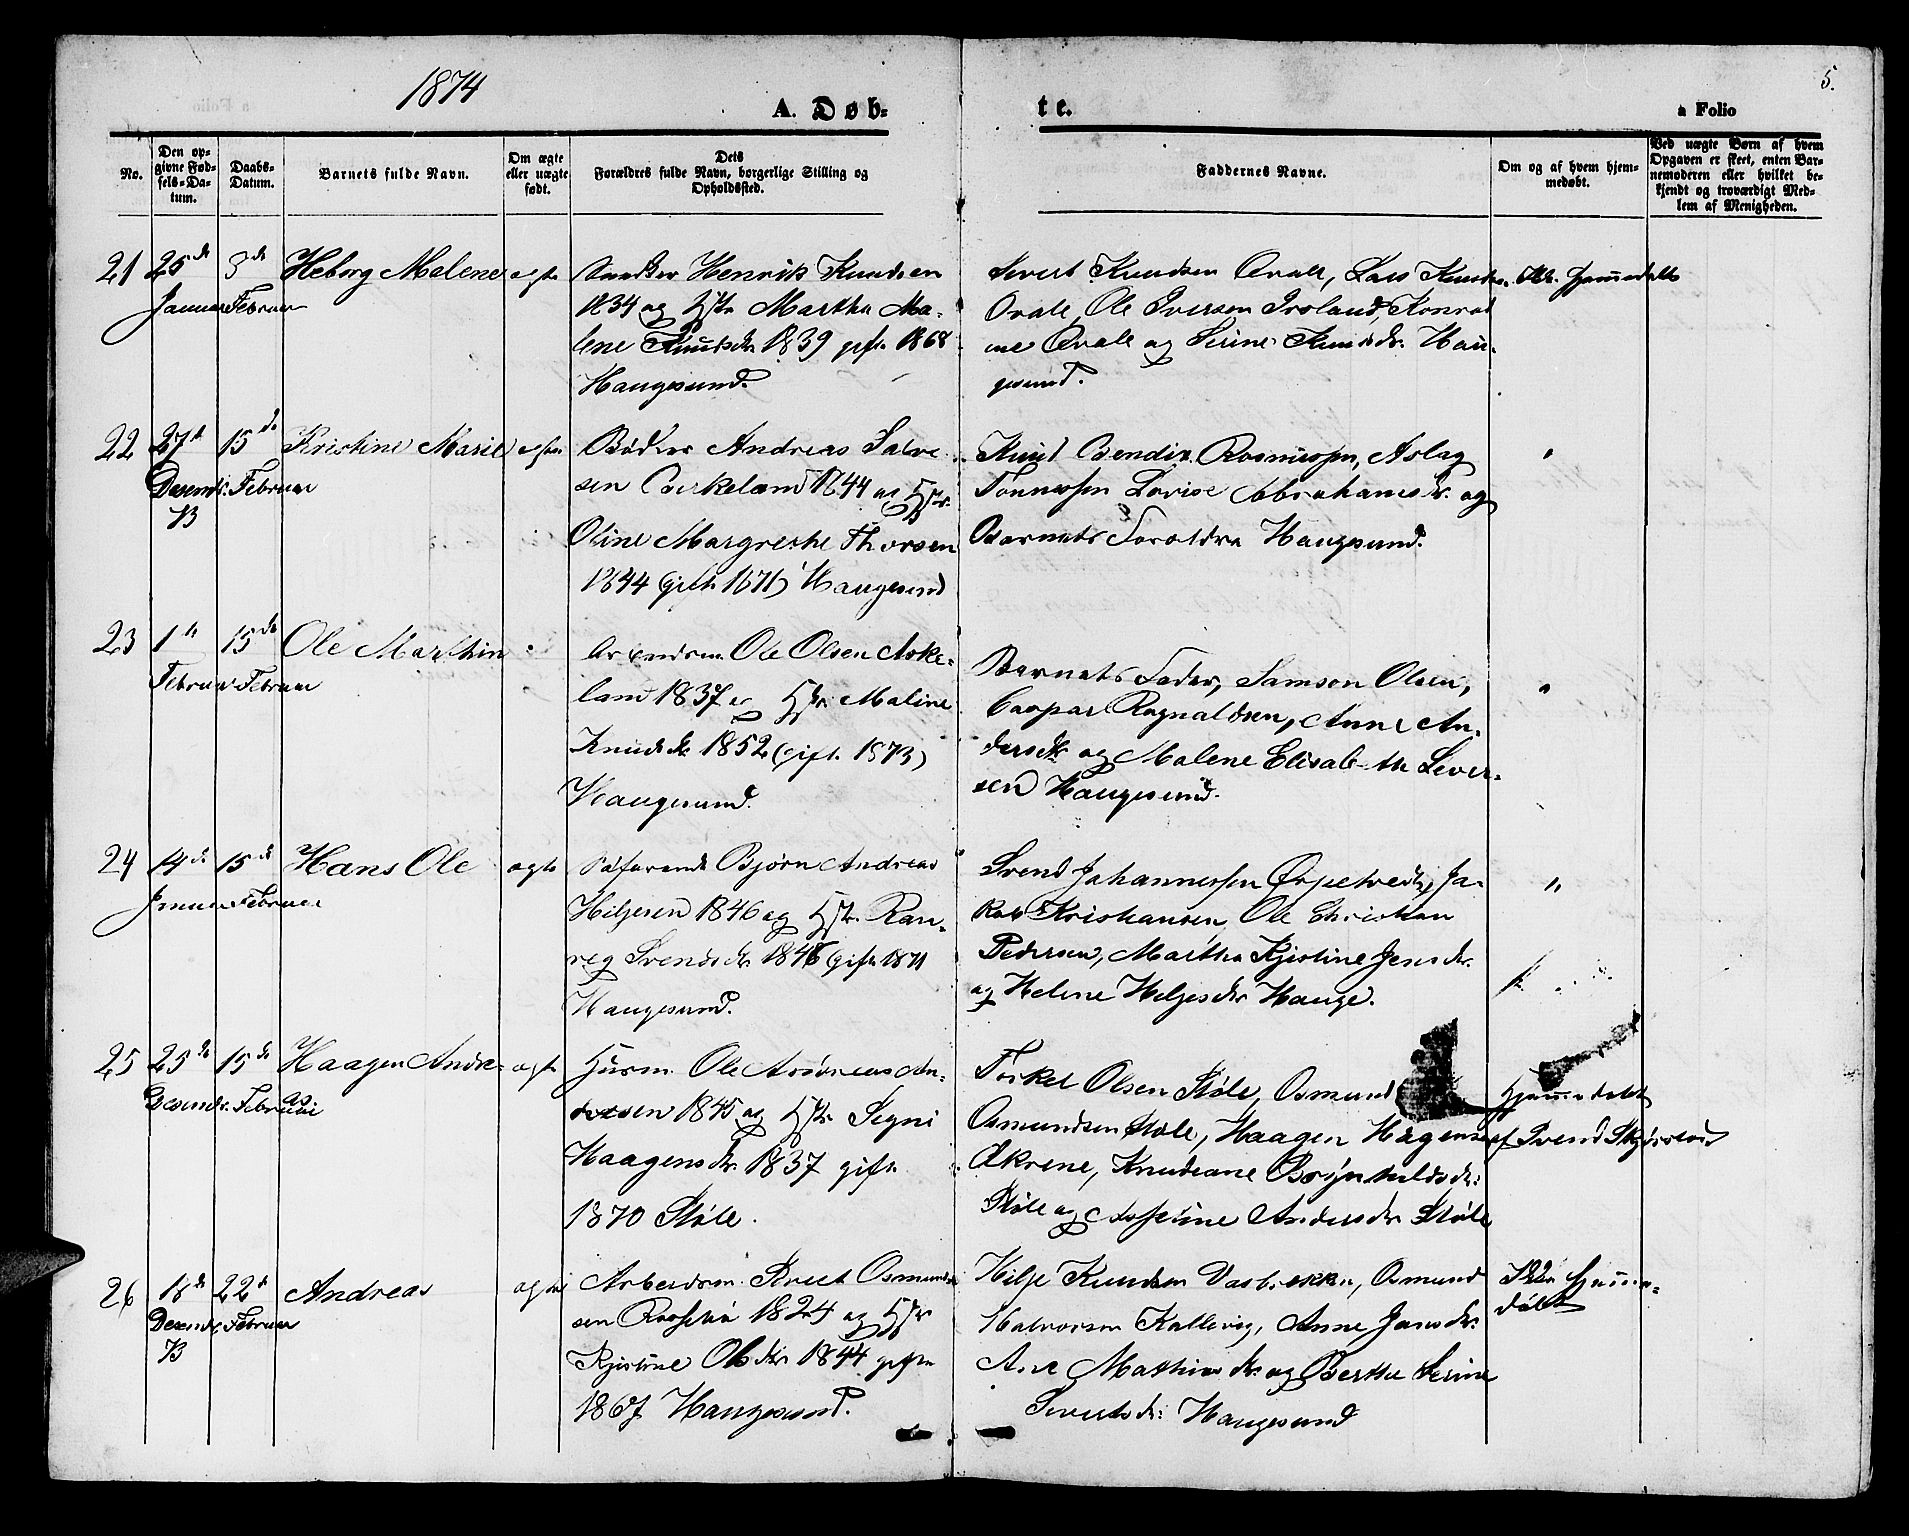 1874
5.
A. Døb-
te.
a Folio
No.
Den op-
givne Fød-
sels-Da-
tum.
Daabs-
Datum.
Barnets fulde Navn.
Om ægte
eller uægte
født.
Dets
Forældres fulde Navn, borgerlige Stilling og
Opholdssted.
Faddernes Navne.
Om og af hvem hjem-
medøbt.
Ved uægte Børn af hvem
Opgaven er skeet, enten Bar-
nemoderen eller hvilket be-
kjendt og troværdigt Med-
lem af Menigheden.
21 25de 3de Heborg Malene ægte
Januar Februar
Henrik Knudsen
1834 og Hstr Martha Ma-
lene Knutsdr. 1839 gift 1868
Haugesund.
Sivert Knudsen Qvale, Lars Knuds.
Qvale, Ole Iversen Probably
ne Qvale og Serine Knudsdr. Hau-
gesund.
22 27de 15de Kristine Marie ægte
Desemb. Februar
73
Bødker Andreas Salve-
sen Birkeland 1844 og Hstr.
Oline Margrethe Thorsen
1844 (gift 1871) Haugesund
Knud Bendix Rasmussen, Aslag
Tønnessen Lovise Abrahamsdr. og
Barnets Forældre Haugesund.
"
23 1te 15de Ole Marthin "
Februar Februar
Arbeidsm. Ole Olsen Aske-
land 1837 og Hstr Maline
Knudsdr 1852 (gift 1873)
Haugesund.
Barnets Fader, Samson Olsen,
Caspar Ragnaldsen, Anne An-
dersdtr og Malene Elisabeth Siver-
sen Haugesund.
"
24 14de 15de Hans Ole ægte
Januar Februar
Søfarende Bjørn Andreas
Hiljesen 1846 og Hstr. Ran-
veg Svendsdr. 1846 (gift 1871
Haugesund.
Svend Johannessen Ørpetvedt, Ja-
kob Kristiansen, Ole Christian
Pedersen, Martha Kjistine Jensdr.
og Helene Heljesdtr Hauge.
"
25 25de 15de Haagen Andre-
as.
ægte
Desemb. Februar
Husm. Ole Andreas An-
dersen 1845 og Hstr Segni
Haagensdr. 1837 gift
1870 Støle.
Torkel Olsen Støle, Osmund
Osmundsen Støle, Haagen Hagensen
Økrene, Knudeane Brynhildsdr.
Støle og Josefine Andersdr Støle
Hjemmedøbt
af Svend
26 18de 22de Andreas ægte
Desemb. Februar
73
Arbeidsm. Sivert Osmund-
sen 1824 og Hstr
Kjistine Olsdtr 1844 gift
1867 Haugesund.
Hilje Knudsen Vasbrekke, Osmund
Halvorsen Kallevig, Anne Jensdr.
Ane Mathiasdr. og Berthe Serine
Sivertsdr: Haugesund
Ikke hjemme-
døbt